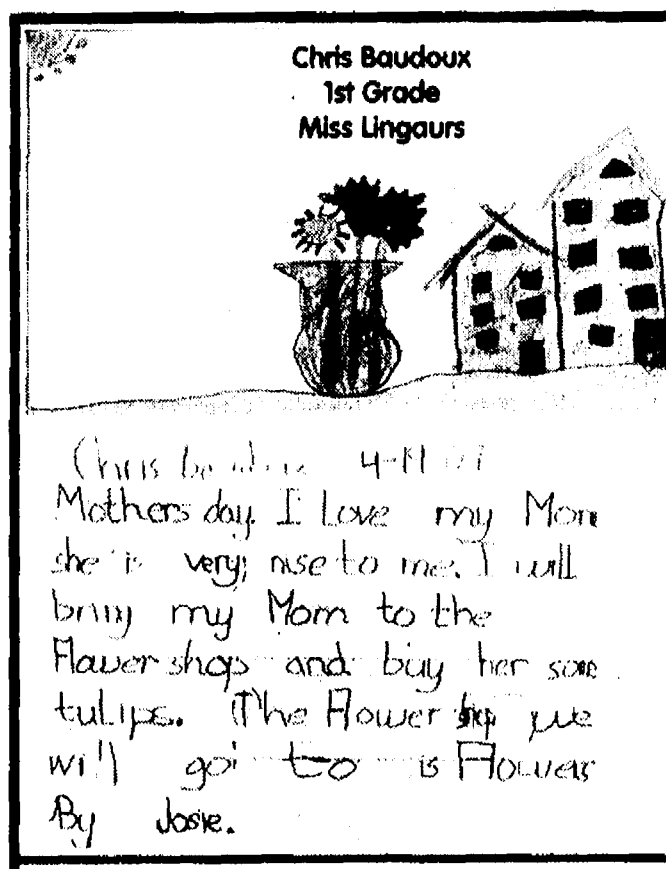 Chris Baudoux
1st Grade
Miss Lingaurs
Chris 4-19
Mothers day. I Love my Mom
she is very nise to me. I will
bring my Mom to the
Flower shop and buy her some
tulips. The Flower shop we
will go to is Flowers
By Josie.